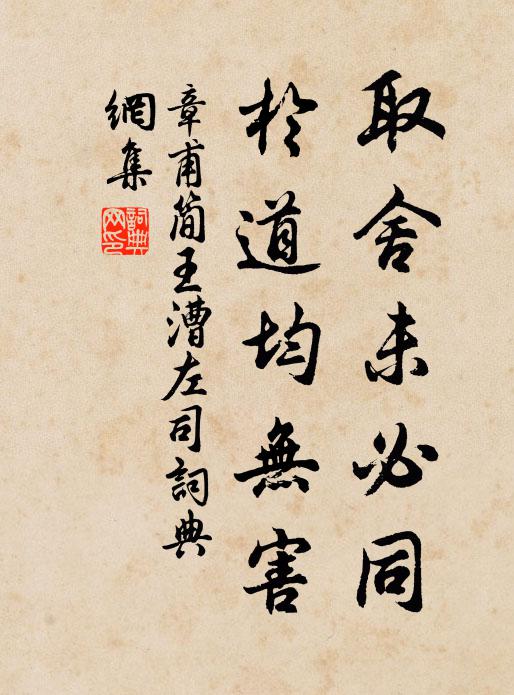 取舍未必同
於道均無害
章甫簡王漕左司詞典
網集
詞典
网印